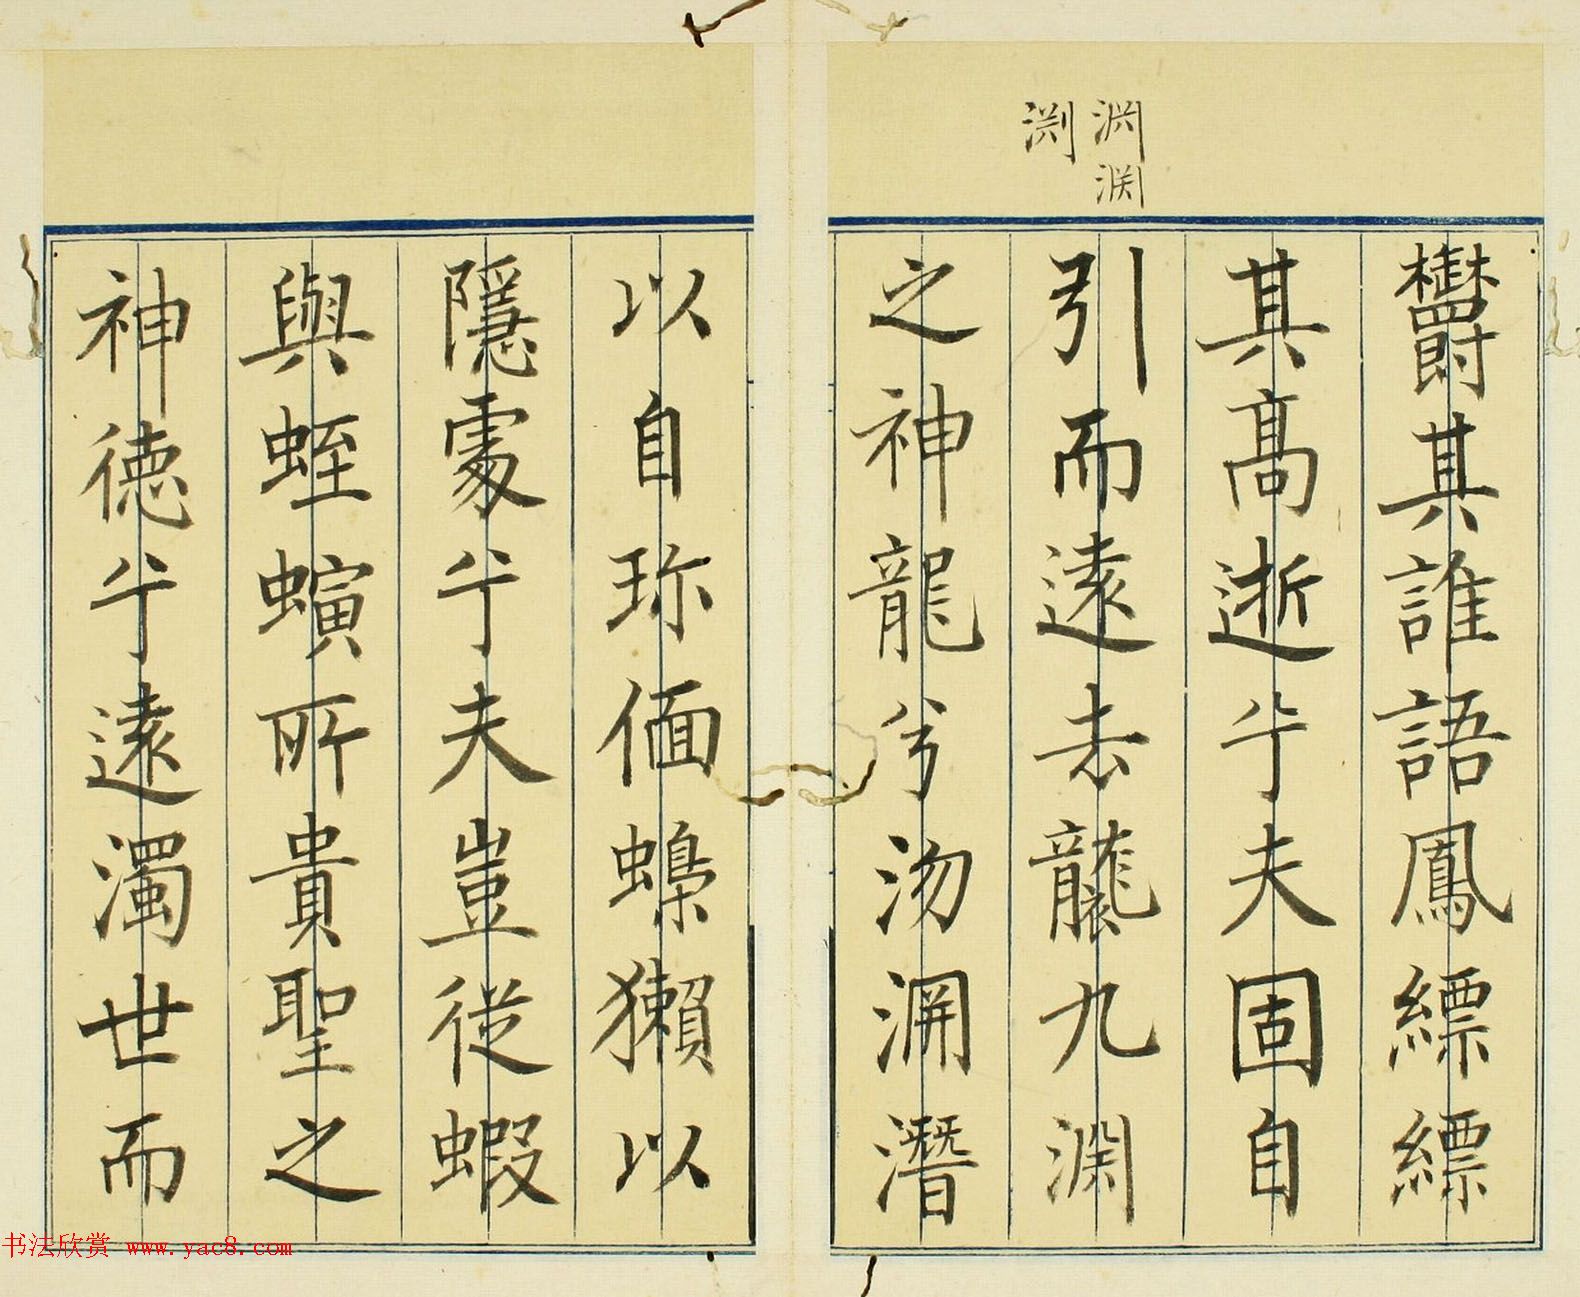 欝其誰語鳳縹縹
其髙逝兮夫固自
引而遠去襲九渊
之神龍兮沕淵潛
以自珎偭蟂獺以
隱處兮夫豈從蝦
與蛭螾所貴聖之
神德兮遠濁世而
书法欣赏 www.yac8.com